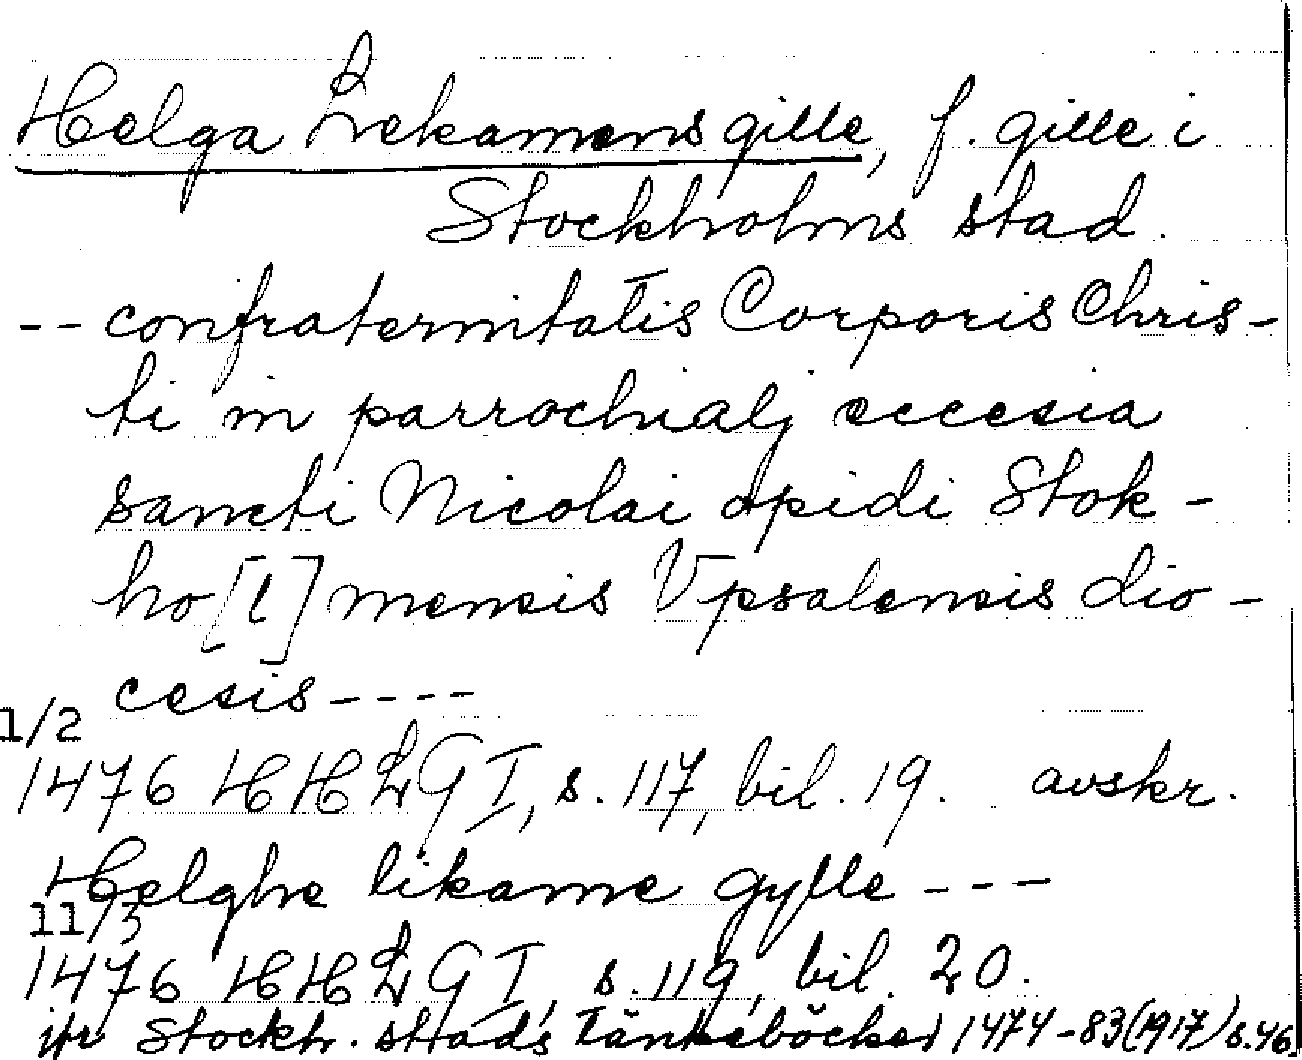 Helga Lekamens gille, f. gille i
Stockholms stad.
-- confraternitatis Corporis Chris-
ti in parrochialj eccesia
sancti Nicolai opidi Stok-
ho[l]mensis Vpsalensis dio-
cesis ----
1/2
1476 HHLG I, s. 117, bil. 19. avskr.
Helghe likame gylle ---
11/3
1476 HHLG I, s. 119, bil. 20.
jfr Stockh. stads Tänkeböcker 1474-83 (1917) s. 46